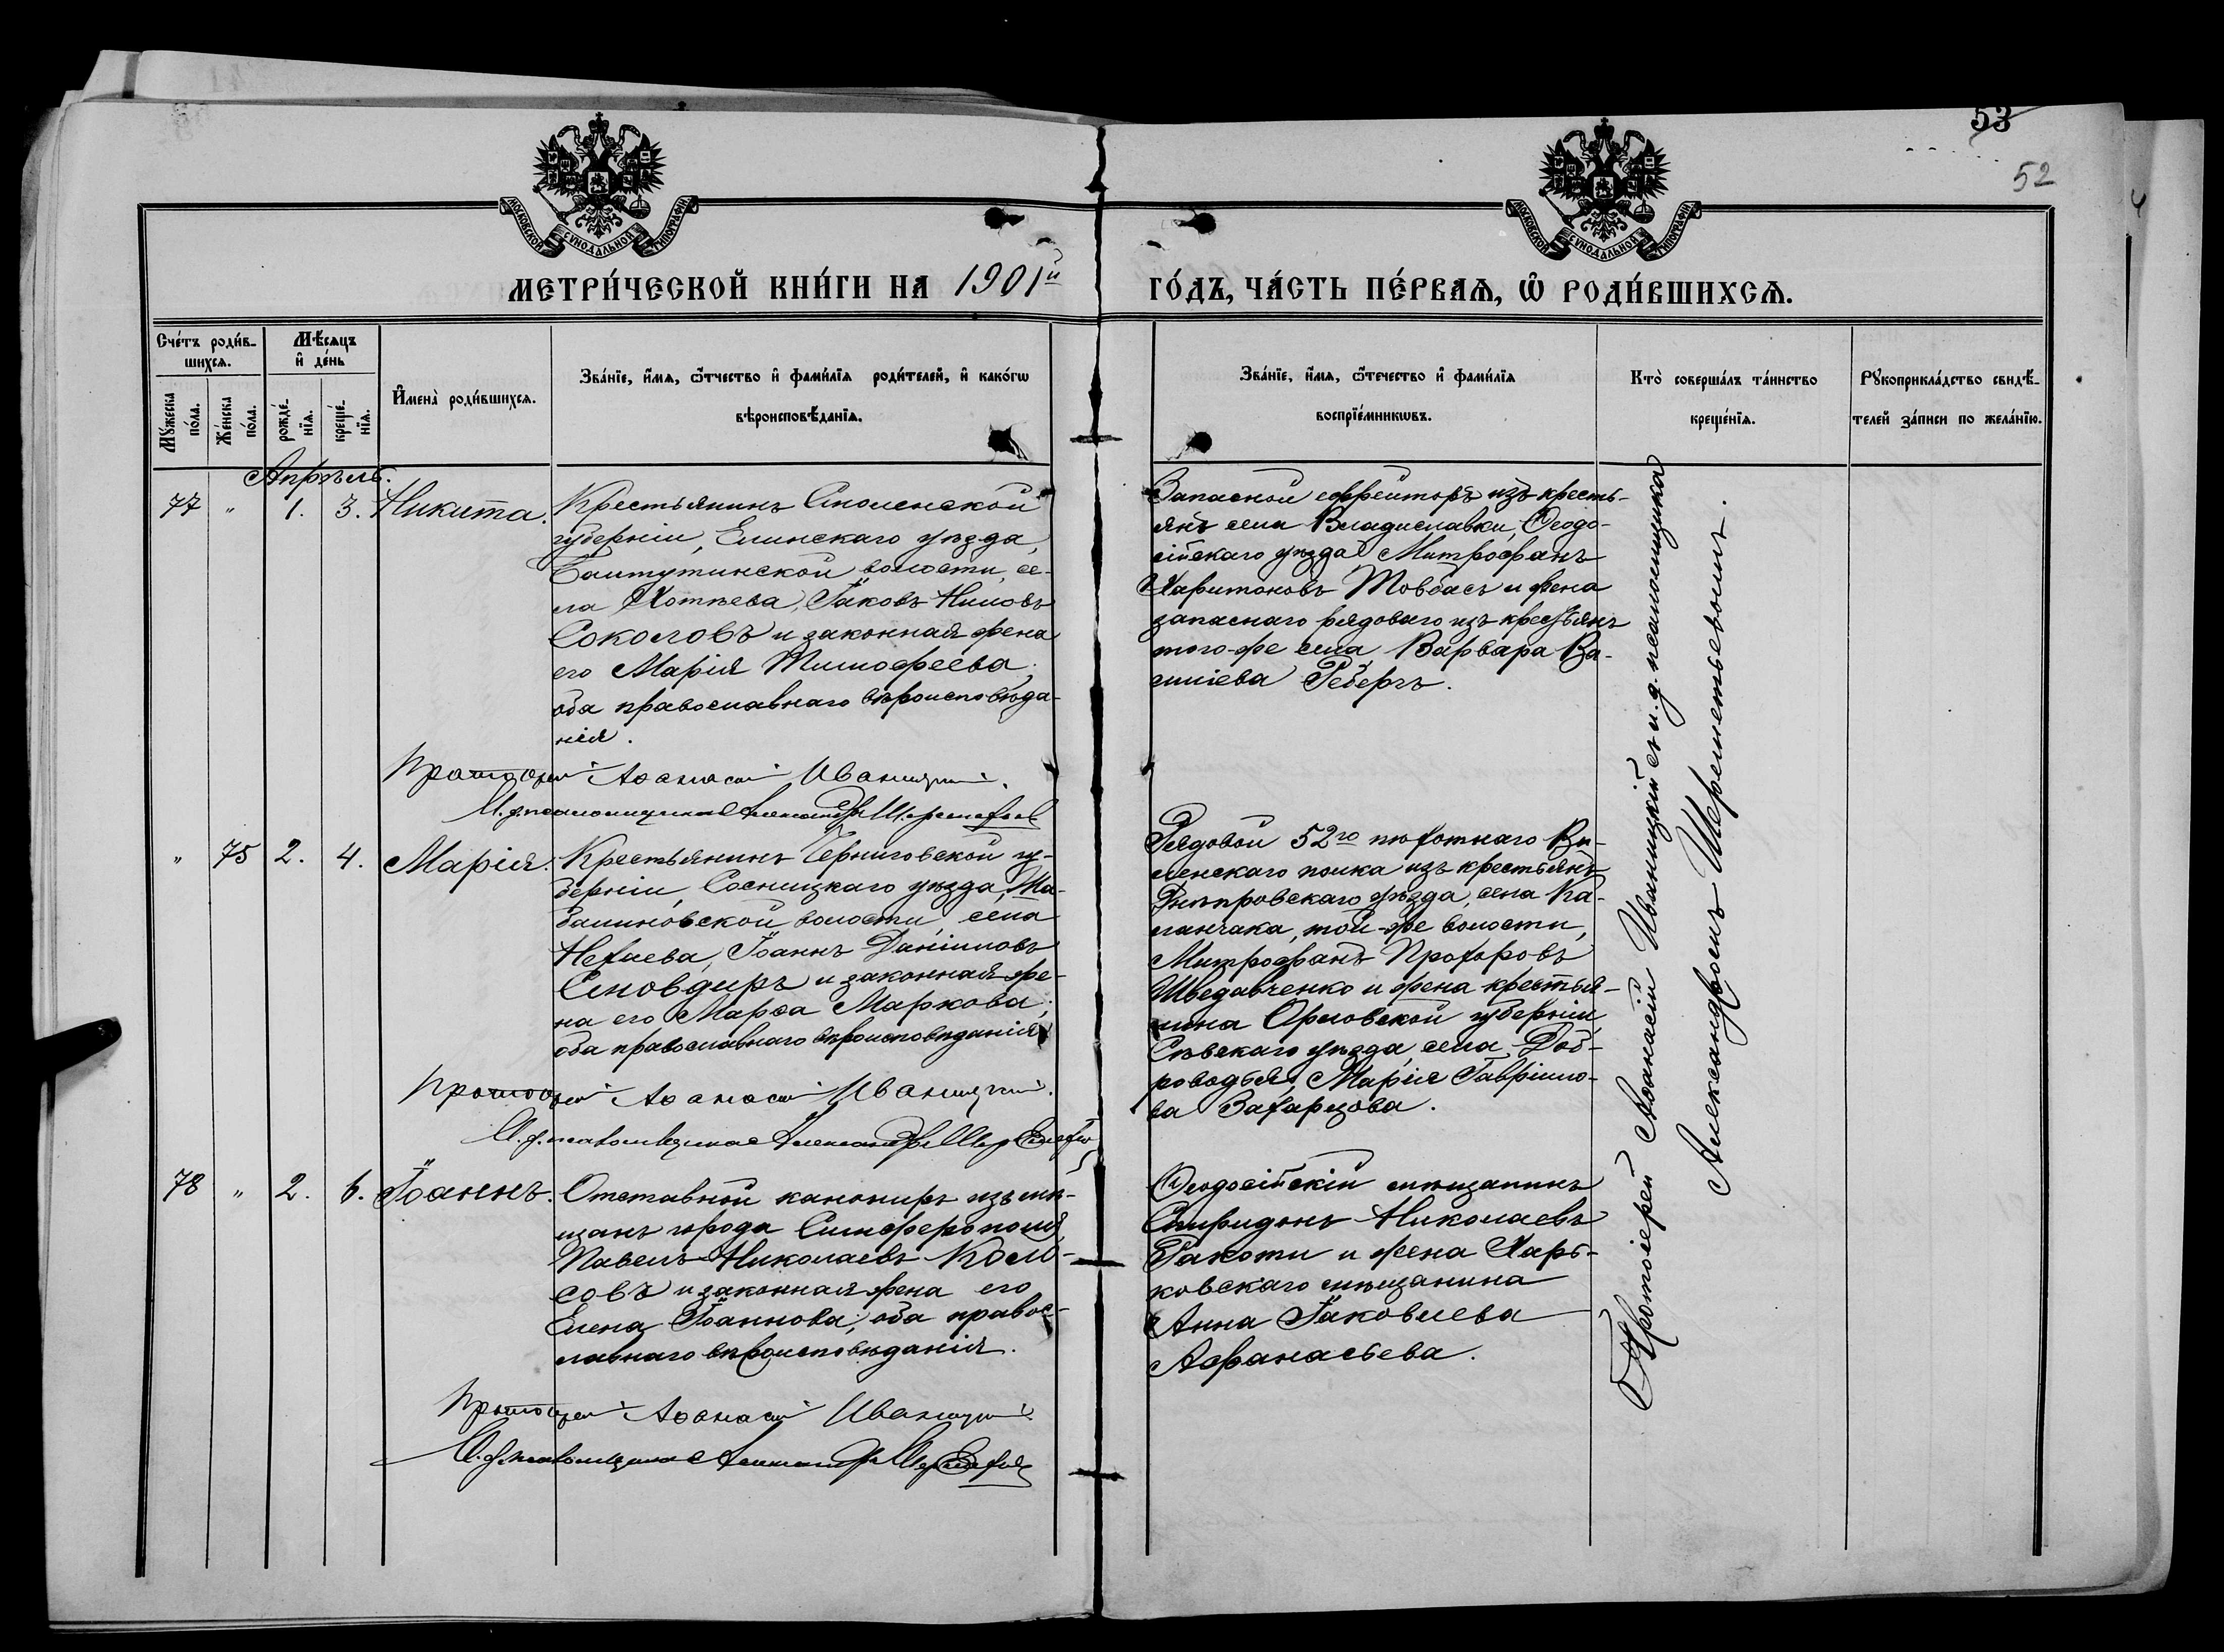 53
52
МОСКОВСКОЙ СѴНОДАЛЬНОЙ ТИПОГРАФІИ
МОСКОВСКОЙ СѴНОДАЛЬНОЙ ТИПОГРАФІИ
МЕТРИ́ЧЕСКОЙ КНИ́ГИ НА 1901й
ГО́ДЪ, ЧА́СТЬ ПЕ́РВАѦ, Ѡ҆ РОДИ́ВШИХСѦ.
Сче́тъ роди́в-
шихсѧ.
Мꙋ́жеска по́ла.
Же́нска по́ла.
Мѣ́сѧцъ
и҆ де́нь
рожде́-
нїѧ.
креще́-
нїѧ.
И҆мена̀ роди́вшихсѧ.
Зва́нїе, и҆́мѧ, ѻ҆́тчество и҆ фами́лїѧ роди́телей, и҆ како́гѡ
вѣроисповѣ́данїѧ.
Зва́нїе, и҆́мѧ, ѻ҆́течество и҆ фами́лїѧ
воспрїе́мникѡвъ.
Кто̀ соверша́лъ та́инство
креще́нїѧ.
Рꙋкоприкла́дство свидѣ́-
телей за́писи по жела́нїю.
Апрѣль.
77 " 1. 3. Никита.
Крестьянинъ Смоленской
губерніи, Елинскаго уѣзда,
Балтутинской волости, се-
ла Хотѣева, Іаковъ Ниловъ
Соколовъ и законная жена
его Марія Тимофеева;
оба православнаго вѣроисповѣда-
нія.
Протоіерей Аѳанасій Иваницкій.
И. д. псаломщика Александръ Шереметьев
Запасной ефрейторъ изъ кресть-
янъ села Владиславки, Ѳеодо-
сійскаго уѣзда Митрофанъ
Харитоновъ Товбасъ и жена
запаснаго рядоваго изъ крестьянъ
того-же села Варвара Ва-
силіева Реберъ.
" 75 2. 4. Марія.
Крестьянинъ Черниговской гу-
берніи, Сосницкаго уѣзда,
волости, села
Нехаева, Іоаннъ Даніиловъ
Сновдиръ и законная же-
на его Марѳа Маркова;
оба православнаго вѣроисповѣданія
Протоіерей Аѳанасій Иваницкій.
И. д. псаломщика Александръ
Рядовой 52го пѣхотнаго Ви-
ленскаго полка изъ крестьянъ
Днѣпровскаго уѣзда, села Ка-
ланчака, той-же волости,
Митрофанъ Прохоровъ
Шведавченко и жена крестья-
нина Орловской губерніи
Сѣвскаго уѣзда, села Доб-
роводья, Марія Гавріило-
ва Захарцова.
78 " 2. 6. Іоаннъ.
Отставной канониръ изъ мѣ-
щанъ города Симферополя,
Павелъ Николаевъ Коло-
совъ и законная жена его
Елена Іоаннова, оба правос-
лавнаго вѣроисповѣданія.
Протоіерей Аѳанасій Иваницкій.
И. д. псаломщика Александръ
Ѳеодосійскій мѣщанинъ
Спиридонъ Николаевъ
Гакоти и жена Харь-
ковскаго мѣщанина
Анна Іаковлева
Афанасьева.
Протоіерей Аѳанасій Иваницкій съ и. д. псаломщика
Александромъ Шереметьевымъ.